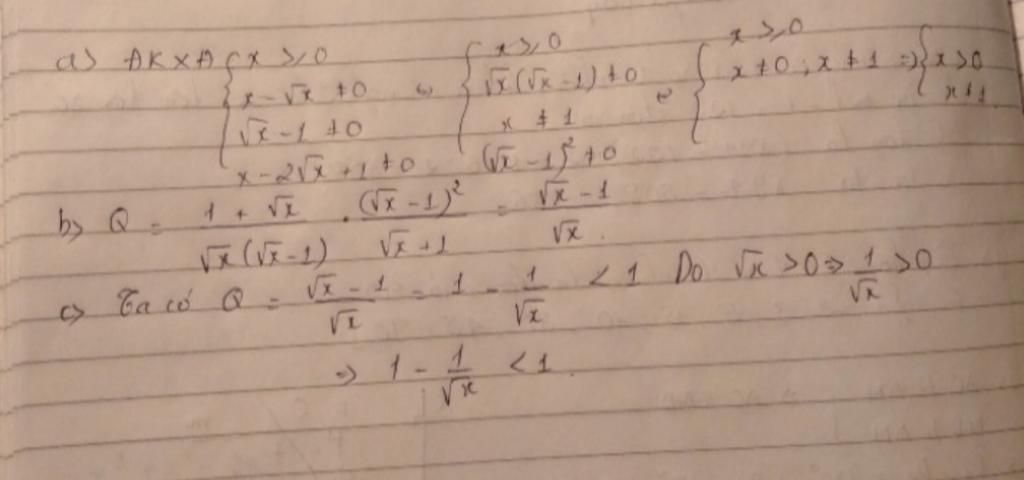 a) ĐKXĐ { x ≥ 0 ⇔ { x ≥ 0 ⇔ { x ≥ 0
x - √x ≠ 0 √x(√x - 1) ≠ 0 x ≠ 0 ; x ≠ 1 ⇒ { x > 0
√x - 1 ≠ 0 x ≠ 1 x ≠ 1
x - 2√x + 1 ≠ 0 (√x - 1)² ≠ 0
b) Q = (1 + √x)/(√x(√x - 1)) . (√x - 1)²/(√x + 1) = (√x - 1)/√x .
c) Ta có Q = (√x - 1)/√x = 1 - 1/√x < 1 Do √x > 0 ⇒ 1/√x > 0
⇒ 1 - 1/√x < 1 .